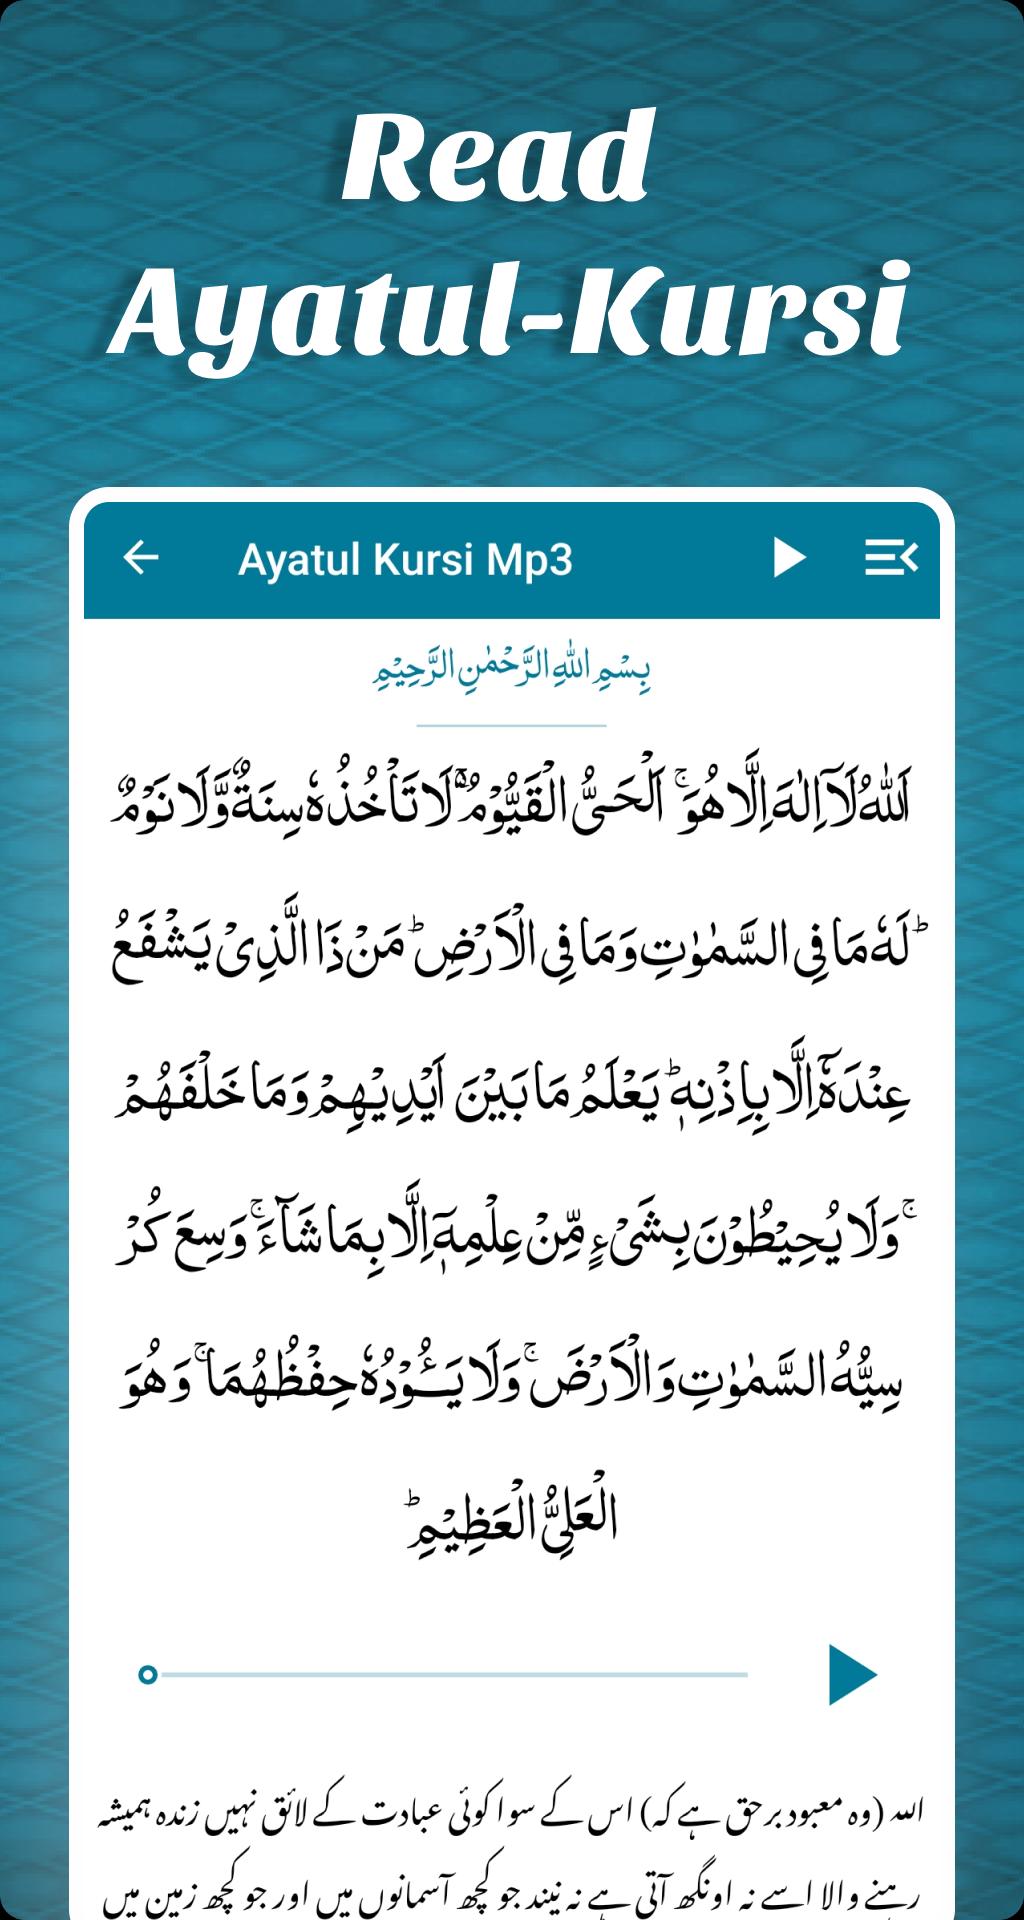 Read
Ayatul-Kursi
Ayatul Kursi Mp3
بِسْمِ اللهِ الرَّحْمٰنِ الرَّحِيْمِ
اَللّٰهُ لَاۤ اِلٰهَ اِلَّا هُوَ ۚ اَلْحَـىُّ الْقَيُّوْمُ ۚ لَا تَاْخُذُهٗ سِنَةٌ وَّلَا نَوْمٌ
ؕ لَهٗ مَا فِى السَّمٰوٰتِ وَمَا فِى الْاَرْضِ ؕ مَنْ ذَا الَّذِىْ يَشْفَعُ
عِنْدَهٗۤ اِلَّا بِاِذْنِهٖ ؕ يَعْلَمُ مَا بَيْنَ اَيْدِيْهِمْ وَمَا خَلْفَهُمْ
ۚ وَلَا يُحِيْطُوْنَ بِشَىْءٍ مِّنْ عِلْمِهٖۤ اِلَّا بِمَا شَآءَ ۚ وَسِعَ كُرْ
سِيُّهُ السَّمٰوٰتِ وَالْاَرْضَ ۚ وَلَا يَـــُٔوْدُهٗ حِفْظُهُمَا ۚ وَهُوَ
الْعَلِىُّ الْعَظِيْمِ ؕ
اللہ (وہ معبود برحق ہے کہ) اس کے سوا کوئی عبادت کے لائق نہیں زندہ ہمیشہ
رہنے والا اسے نہ اونگھ آتی ہے نہ نیند جو کچھ آسمانوں میں اور جو کچھ زمین میں